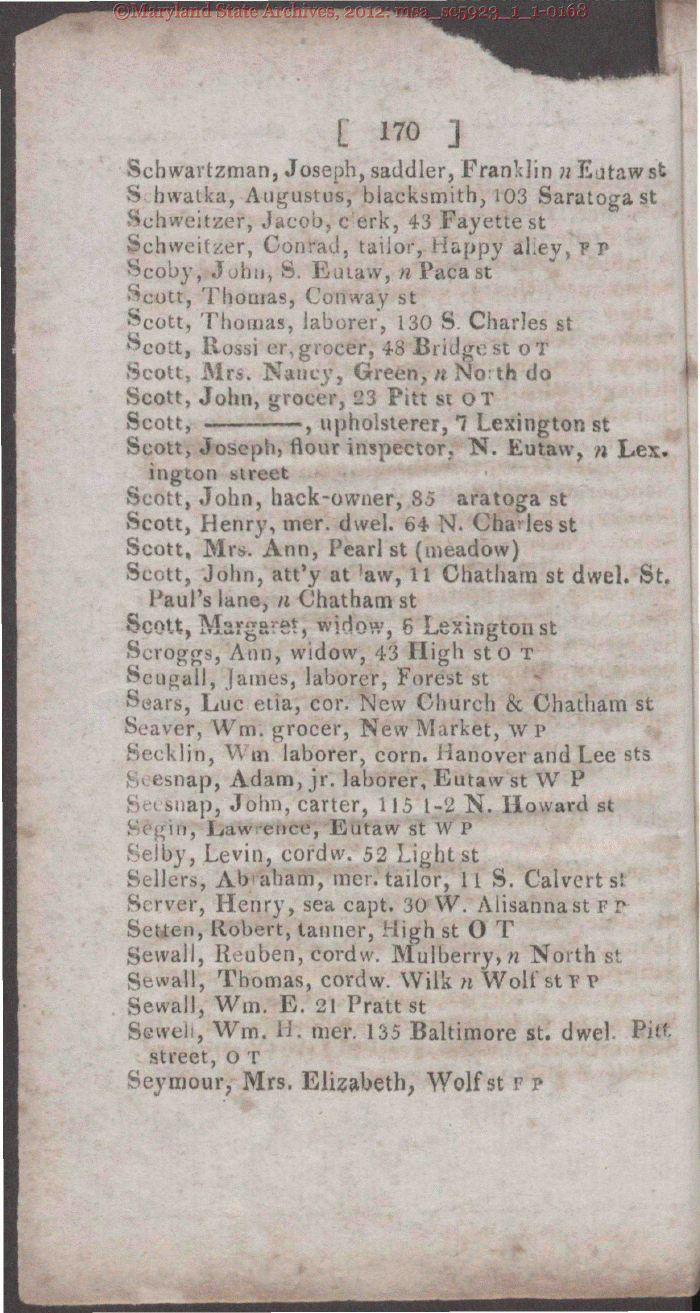 ©Maryland State Archives, 2012: msa_sc5923_1_1-0168
[ 170 ]
Schwartzman, Joseph, saddler, Franklin n Eutaw st
S hwatka, Augustus, blacksmith, 103 Saratoga st
Schweitzer, Jacob, c erk, 43 Fayette st
Schweitzer, Conrad, tailor, Happy alley, F P
Scoby, John, S. Eutaw, n Paca st
Scott, Thomas, Conway st
Scott, Thomas, laborer, 130 S. Charles st
Scott, Rossi er, grocer, 48 Bridge st O T
Scott, Mrs. Nancy, Green, n North do
Scott, John, grocer, 23 Pitt st O T
Scott, ————, upholsterer, 7 Lexington st
Scott, Joseph, flour inspector, N. Eutaw, n Lex.
ington street
Scott, John, hack-owner, 85 aratoga st
Scott, Henry, mer. dwel. 64 N. Charles st
Scott, Mrs. Ann, Pearl st (meadow)
Scott, John, att'y at law, 11 Chatham st dwel. St.
Paul's lane, n Chatham st
Scott, Margaret, widow, 6 Lexington st
Scroggs, Ann, widow, 43 High st O T
Scugall, James, laborer, Forest st
Sears, Luc etia, cor. New Church & Chatham st
Seaver, Wm. grocer, New Market, W P
Secklin, Wm laborer, corn. Hanover and Lee sts
Seesnap, Adam, jr. laborer, Eutaw st W P
Seesnap, John, carter, 115 1-2 N. Howard st
Segin, Lawrence, Eutaw st W P
Selby, Levin, cordw. 52 Light st
Sellers, Abraham, mer. tailor, 11 S. Calvert st
Server, Henry, sea capt. 30 W. Alisanna st F P
Setten, Robert, tanner, High st O T
Sewall, Reuben, cordw. Mulberry, n North st
Sewall, Thomas, cordw. Wilk n Wolf st F P
Sewall, Wm. E. 21 Pratt st
Sewell, Wm. H. mer. 135 Baltimore st. dwel. Pitt
street, O T
Seymour, Mrs. Elizabeth, Wolf st F P